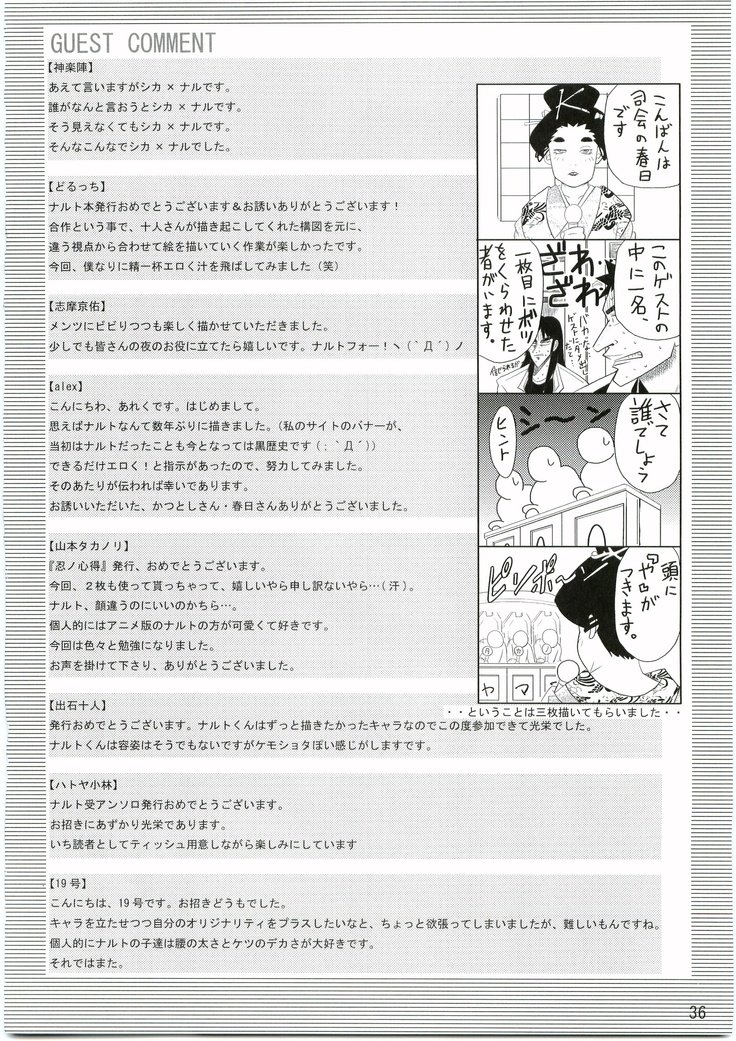 GUEST COMMENT
【神楽陣】
あえて言いますがシカ×ナルです。
誰がなんと言おうとシカ×ナルです。
そう見えなくてもシカ×ナルです。
そんなこんなでシカ×ナルでした。
【どるっち】
ナルト本発行おめでとうございます＆お誘いありがとうございます！
合作という事で、十人さんが描き起こしてくれた構図を元に、
違う視点から合わせて絵を描いていく作業が楽しかったです。
今回、僕なりに精一杯エロく汁を飛ばしてみました（笑）
【志摩京佑】
メンツにビビりつつも楽しく描かせていただきました。
少しでも皆さんの夜のお役に立てたら嬉しいです。ナルトフォー！ヽ(｀Д´)ノ
【alex】
こんにちわ、あれくです。はじめまして。
思えばナルトなんて数年ぶりに描きました。（私のサイトのバナーが、
当初はナルトだったことも今となっては黒歴史です（；｀Д´））
できるだけエロく！と指示があったので、努力してみました。
そのあたりが伝われば幸いであります。
お誘いいただいた、かつとしさん・春日さんありがとうございました。
【山本タカノリ】
『忍ノ心得』発行、おめでとうございます。
今回、２枚も使って貰っちゃって、嬉しいやら申し訳ないやら…(汗)。
ナルト、顔違うのにいいのかちら…。
個人的にはアニメ版のナルトの方が可愛くて好きです。
今回は色々と勉強になりました。
お声を掛けて下さり、ありがとうございました。
【出石十人】
発行おめでとうございます。ナルトくんはずっと描きたかったキャラなのでこの度参加できて光栄でした。
ナルトくんは容姿はそうでもないですがケモショタぽい感じがしますです。
【ハトヤ小林】
ナルト受アンソロ発行おめでとうございます。
お招きにあずかり光栄であります。
いち読者としてティッシュ用意しながら楽しみにしています
【19号】
こんにちは、19号です。お招きどうもでした。
キャラを立たせつつ自分のオリジナリティをプラスしたいなと、ちょっと欲張ってしまいましたが、難しいもんですね。
個人的にナルトの子達は腰の太さとケツのデカさが大好きです。
それではまた。
こんばんは
司会の春日
です
K
このゲストの
中に一名、
一枚目にボツ
をくらわせた
者がいます。
ざわ
ざわ
さて
誰でしょう
シーン
ヒント
頭に
『や』が
つきます。
ピンポーン
ヤマ
・・ということは三枚描いてもらいました・・
36